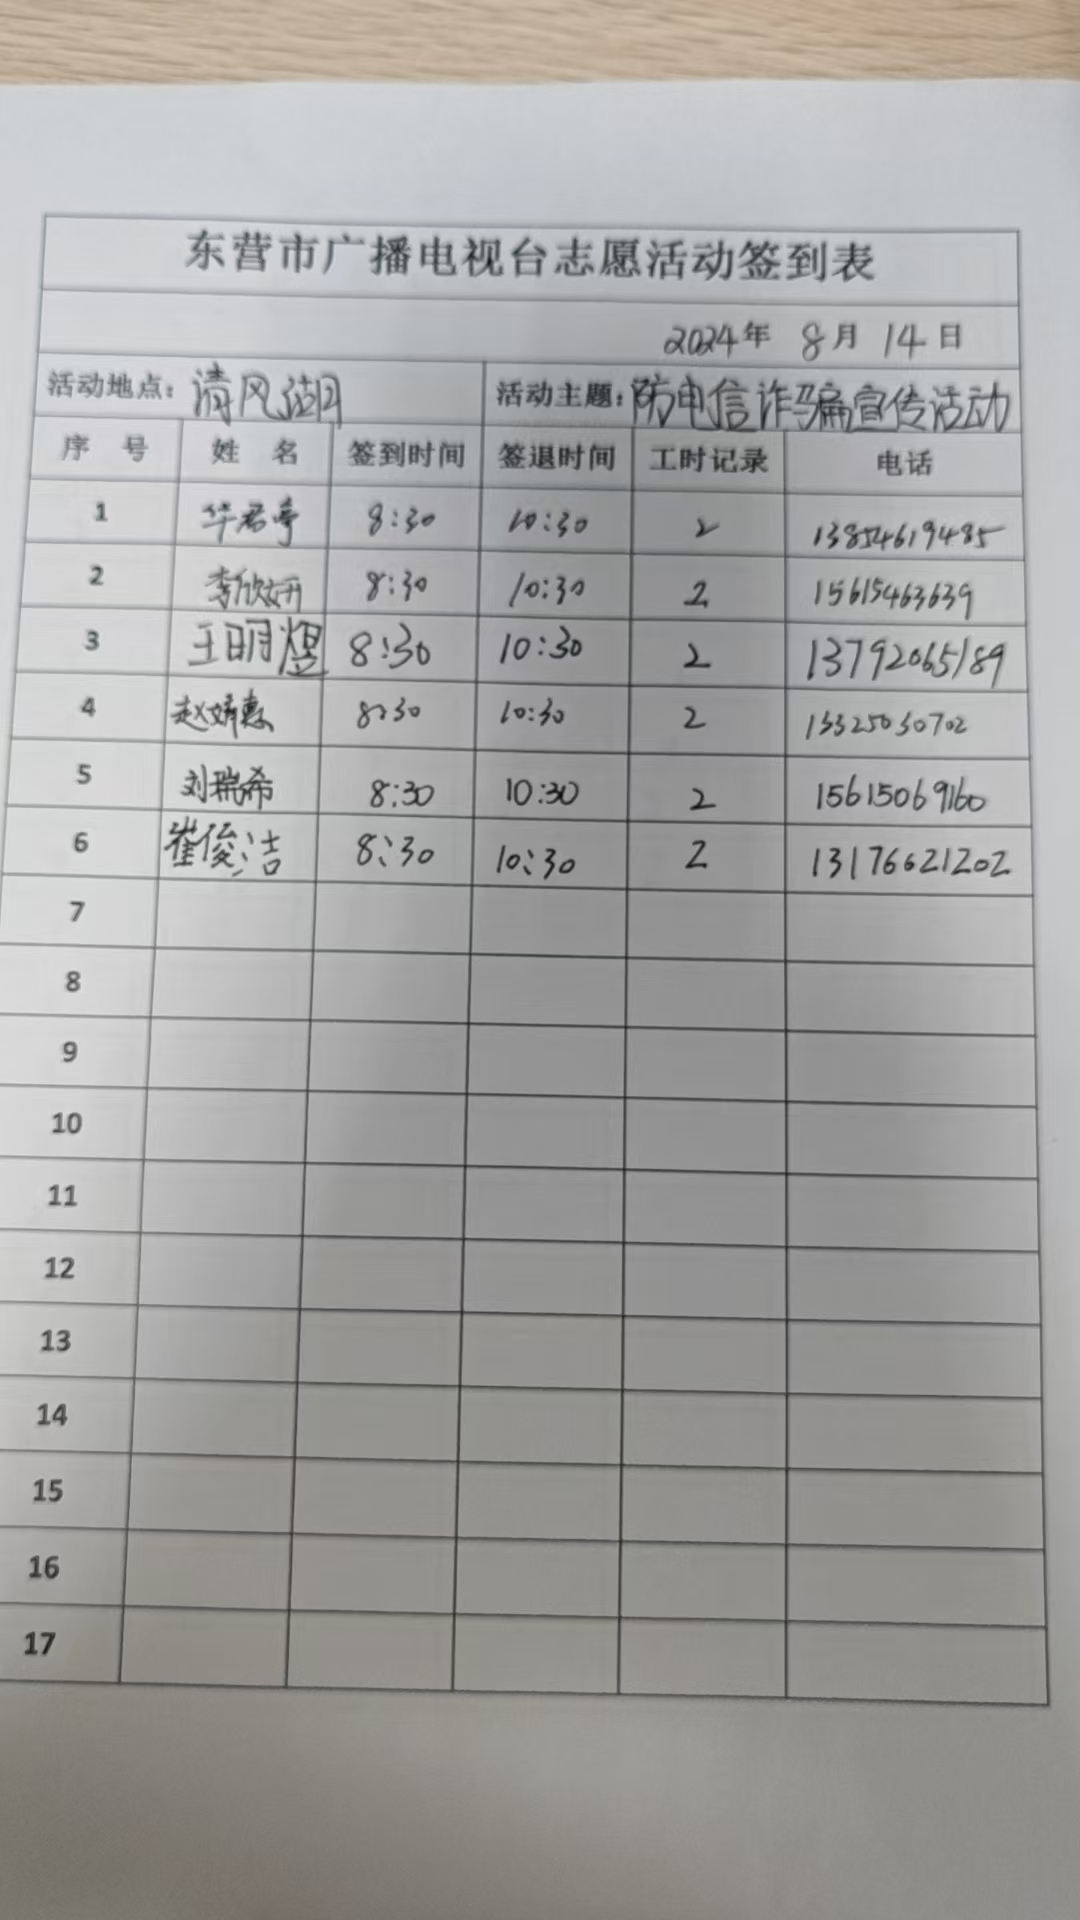 东营市广播电视台志愿活动签到表
2024年 8月 14日
活动地点：清风湖 活动主题：防电信诈骗宣传活动
序 号 姓 名 签到时间 签退时间 工时记录 电话
1 华君亭 8:30 10:30 2 13854619485
2 李欣妍 8:30 10:30 2 15615463639
3 王明煜 8:30 10:30 2 13792065189
4 赵婧惠 8:30 10:30 2 13325030702
5 刘瑞希 8:30 10:30 2 15615069160
6 崔俊洁 8:30 10:30 2 13176621202
7
8
9
10
11
12
13
14
15
16
17